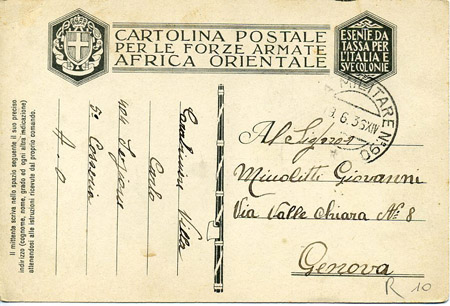 CARTOLINA POSTALE
PER LE FORZE ARMATE
AFRICA ORIENTALE
ESENTE DA
TASSA PER
L'ITALIA E
SVE COLONIE
MILITARE Nº 90
9.6.36 XIV
Il mittente scriva nello spazio seguente il suo preciso
indirizzo (cognome, nome, grado ed ogni altra indicazione)
attenendosi alle istruzioni ricevute dal proprio comando.
Villa
Carlo
A.O
Al Signor
Minoletti Giovanni
Via Valle Chiara Nº 8
Genova
R 10